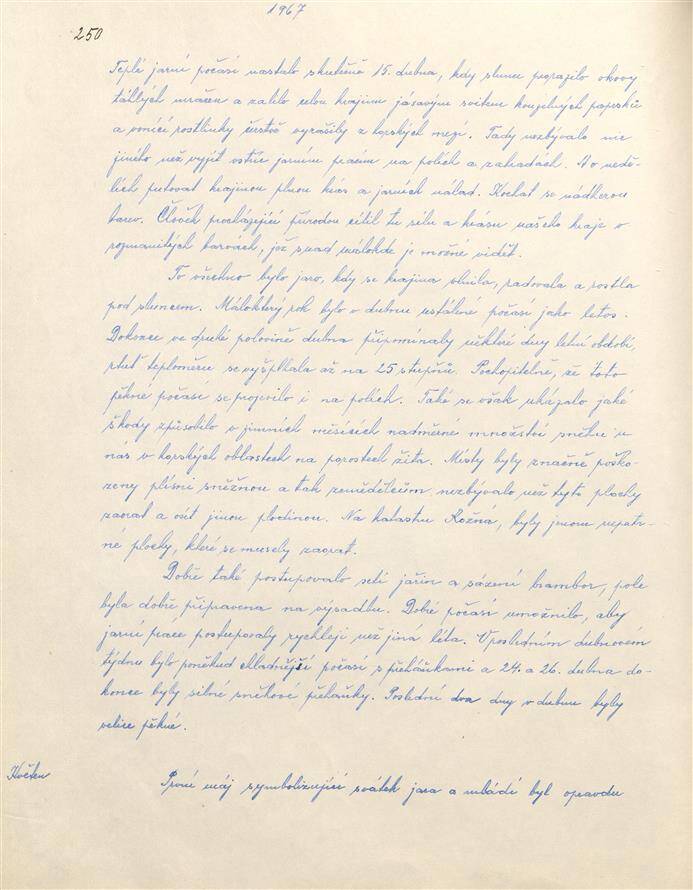 1967
250
Teplé jarní počasí nastalo skutečně 15. dubna, kdy slunce prorazilo okovy
táhlých mračen a zalilo celou krajinu jásavým svitem kouzelných paprsků
a vonící rostlinky čerstvě vyrašily z horských mezí. Tady nezbývalo nic
jiného než vyjít vstříc jarním pracím na polích a zahradách. A o nedě-
lích putovat krajinou plnou krás a jarních nálad. Kochat se nádherou
barev. Člověk procházející přírodou cítil tu sílu a krásu našeho kraje v
rozmanitých barvách, jež snad málokde je možné vidět.
To všechno bylo jaro, kdy se krajina vlnila, radovala a rostla
pod sluncem. Málokterý rok bylo v dubnu ustálené počasí jako letos.
Dokonce ve druhé polovině dubna připomínaly některé dny letní období,
rtuť teploměru se vyšplhala až na 25 stupňů. Pochopitelně, že toto
pěkné počasí se projevilo i na polích. Také se však ukázalo jaké
škody způsobilo v zimních měsících nadměrné množství sněhu u
nás v horských oblastech na porostech žita. Místy byly značně poško-
zeny plísní sněžnou a tak zemědělcům nezbývalo než tyto plochy
zaorat a osít jinou plodinou. Na katastru Rožná, byly jenom nepatr-
né plochy, které se musely zaorat.
Dobře také postupovalo setí jařin a sázení brambor, pole
byla dobře připravena na výsadbu. Dobré počasí umožnilo, aby
jarní práce postupovaly rychleji než jina léta. V posledním dubnovém
týdnu bylo poněkud chladnější počasí s přeháňkami a 24. a 26. dubna do-
konce byly silné sněhové přeháňky. Poslední dva dny v dubnu byly
velice pěkné.
Květen
První máj symbolizující svátek jara a mládí byl opravdu